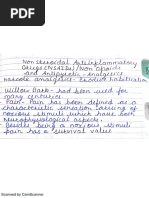 Non Steroidal Antiinflammatory
Druges (NSAIDs)/Non opioids
and Antipyretic-Analgesics
Narcotic analgesics-
Willow Bark - had been used for
many centuries.
Pain - Pain has been defined as a
characteristic sensation
noxious stimuli which have both
neurophysiological aspects.
Besides being a noxious stimuli
pain has a survival value
Scanned by CamScanner